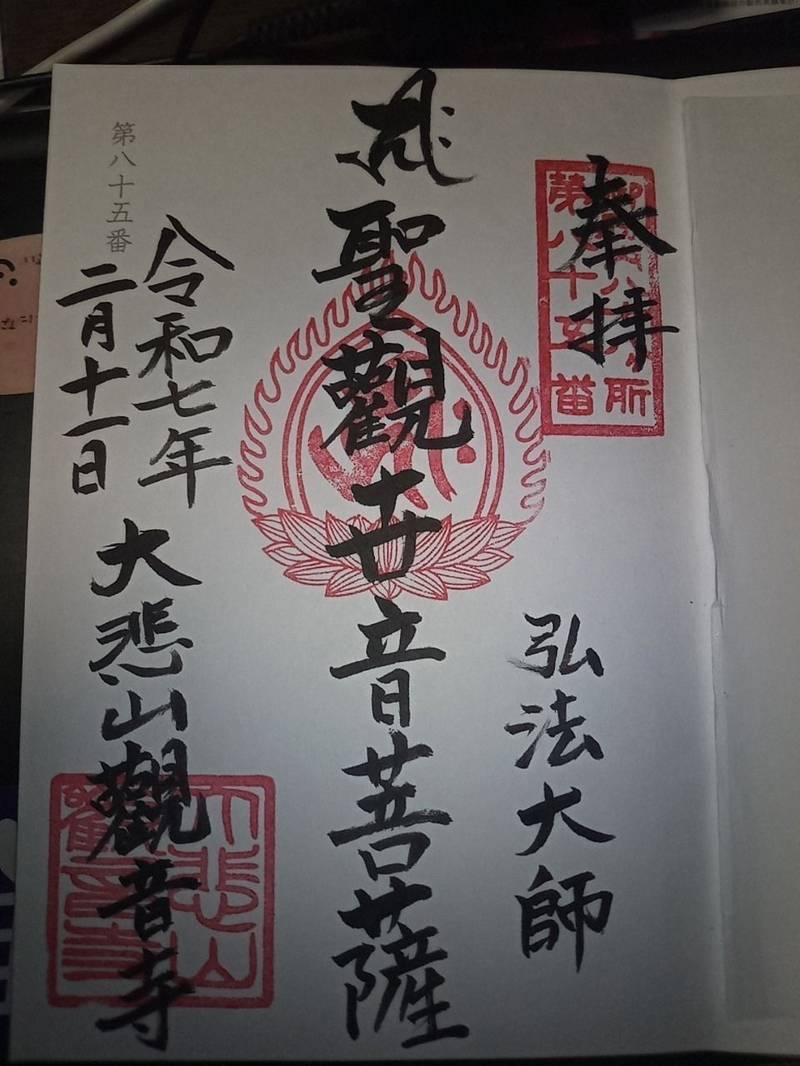 奉拝
第八十五番
弘法大師
聖觀世音菩薩
令和七年
二月十一日
大悲山觀音寺
大悲山
觀音寺
第八十五番